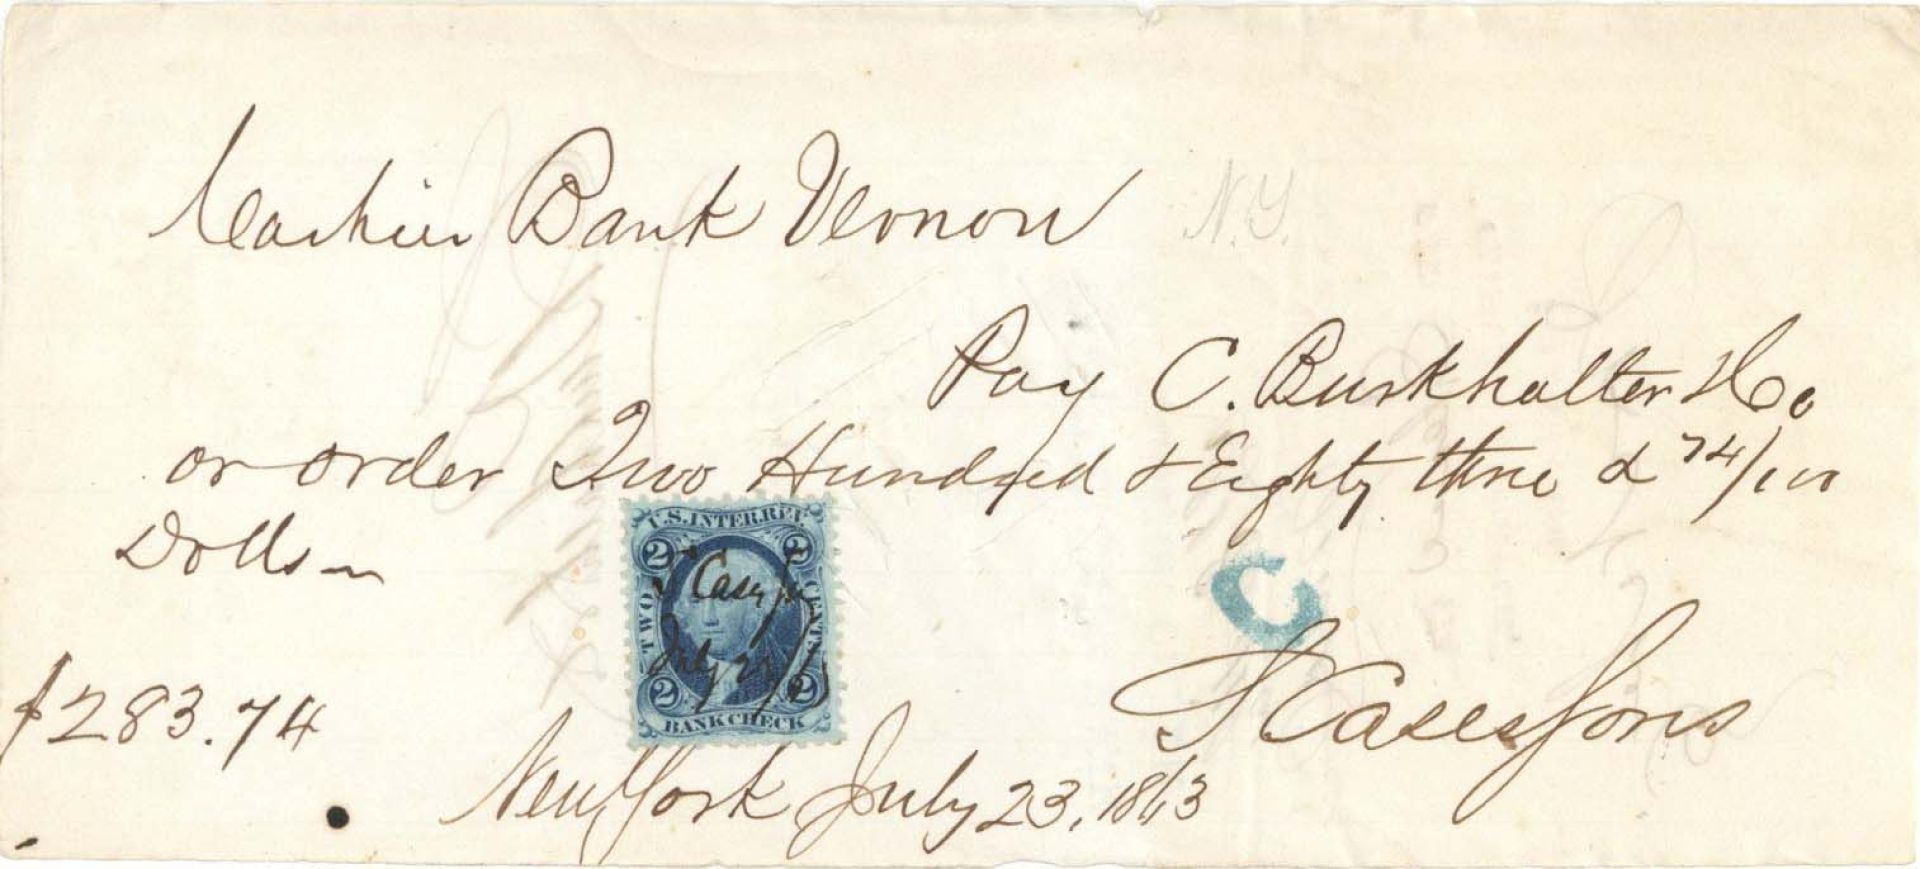 Cashier Bank Vernon
N.Y.
Pay C. Burkhalter & Co
or order Two Hundred & Eighty three & 74/100
Dolls
U.S. INTER. REV.
2 2
TWO CENTS
July 23/63
2 2
BANK CHECK
C
$283.74
New York July 23, 1863